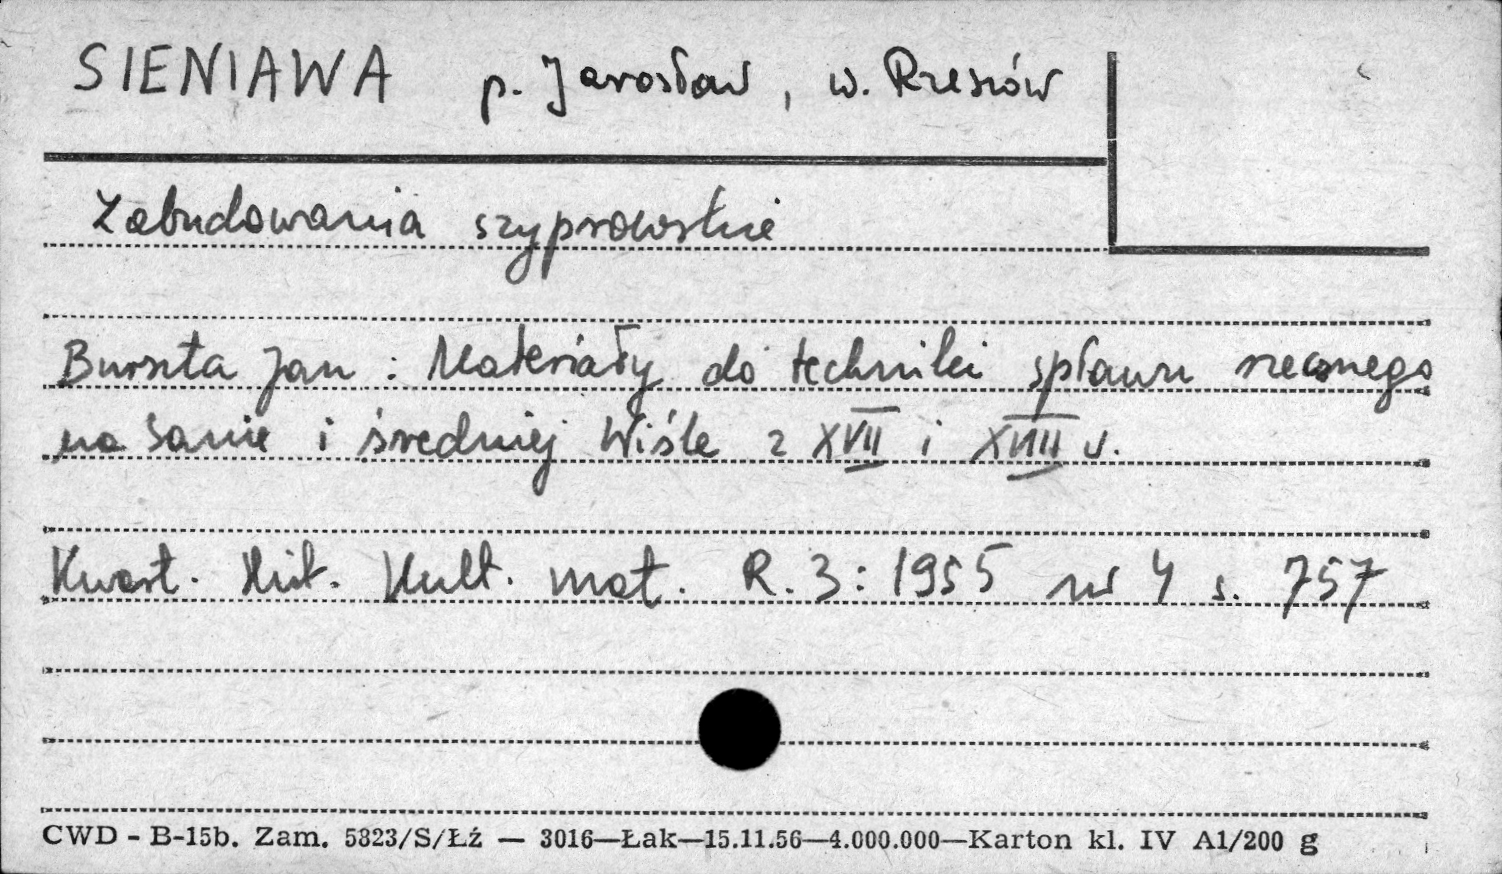 SIENIAWA p. Jarosław, w. Rzeszów
Zabudowania szyprowskie
Burszta Jan : Materiały do techniki spławu rzecznego
na Sanie i średniej Wiśle z XVII i XVIII w.
Kwart. Hist. Kult. mat. R. 3: 1955 nr 4 s. 757
CWD - B-15b. Zam. 5823/S/Łź — 3016—Łak—15.11.56—4.000.000—Karton kl. IV A1/200 g